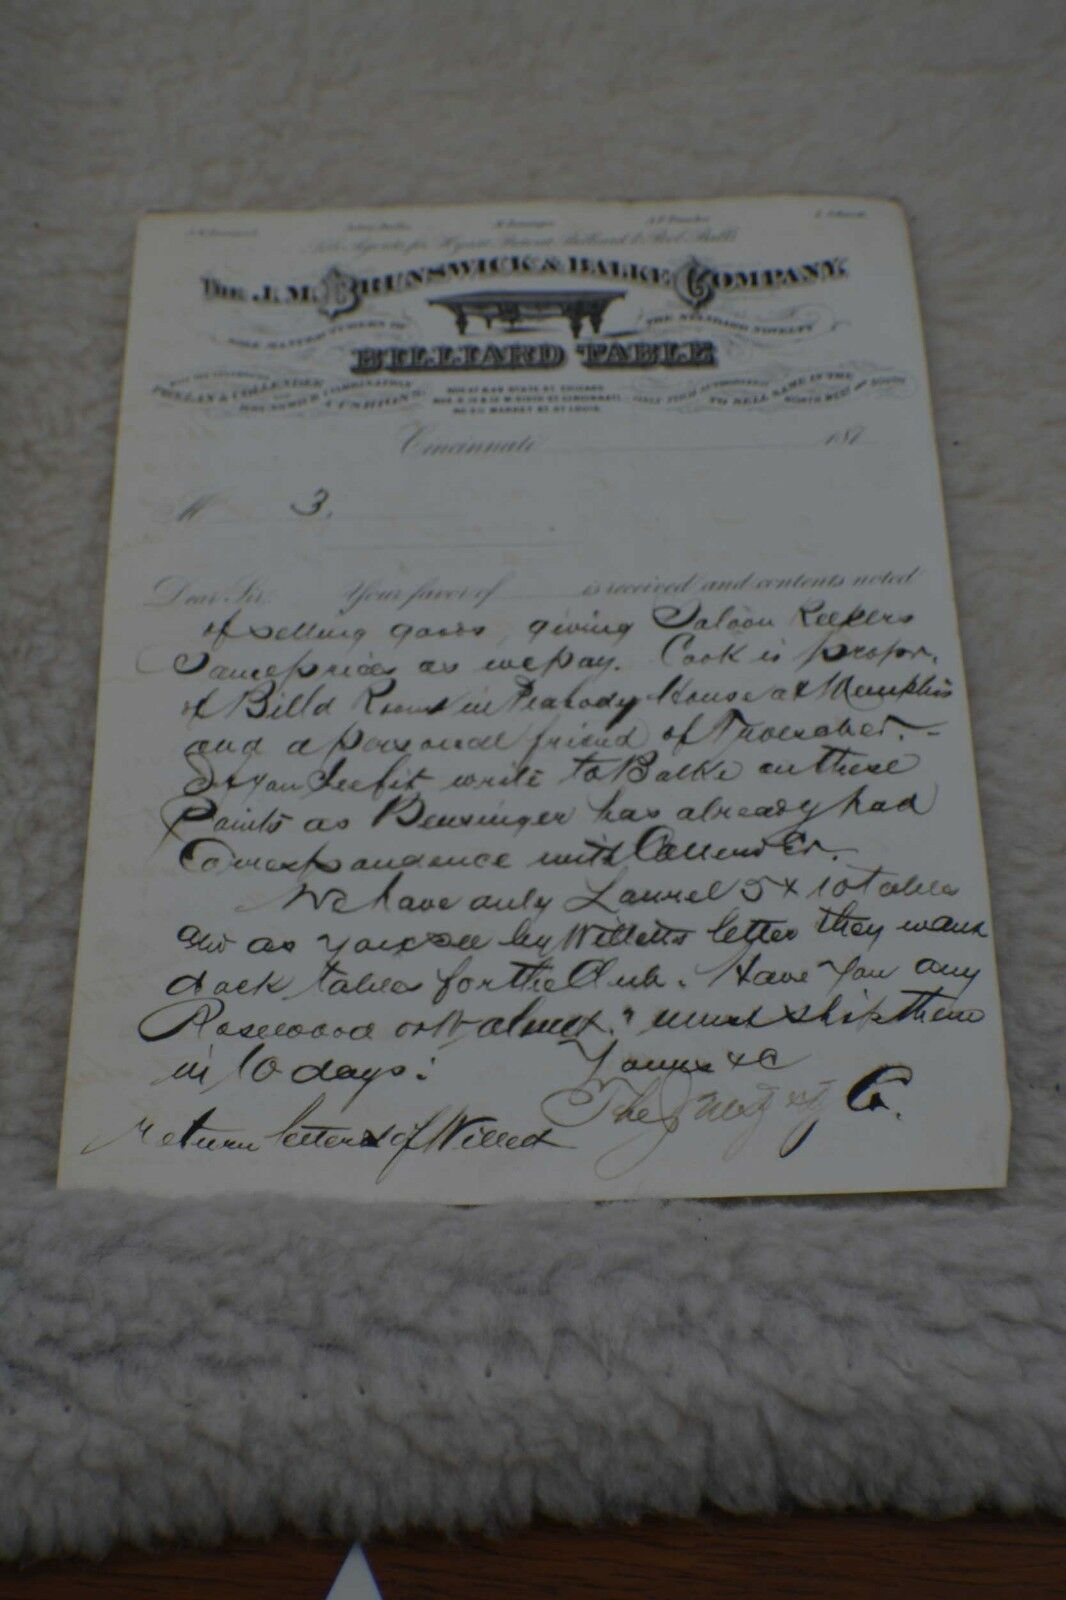 Sole Agents for Hyatt Patent Billiard & Pool Balls
The J. M. Brunswick & Balke Company,
SOLE MANUFACTURERS OF
THE STANDARD NOVELTY
BILLIARD TABLE
PHELAN & COLLENDER
AND
BRUNSWICK COMBINATION
CUSHIONS.
STATE ST. CHICAGO.
ST. CINCINNATI.
MARKET ST. ST LOUIS.
ONLY FIRM AUTHORIZED
TO SELL SAME IN THE
NORTH WEST AND SOUTH
Cincinnati 187
M 3.
Dear Sir: Your favor of is received and contents noted
of selling goods, giving Saloon Keepers
Same prices as we pay. Cook is propr.
of Billd Room in Peabody House at Memphis
and a personal friend of
If you see fit write to Balke on these
Points as Bensinger has already had
Correspondence with Collender.
We have only Laurel 5 x 10 tables
as you see by Willetts letter they want
dark tables for the Club. Have You any
Rosewood or Walnut? must ship them
in 10 days.
Yours &c
The J M B & B Co.
Return letters of Willett